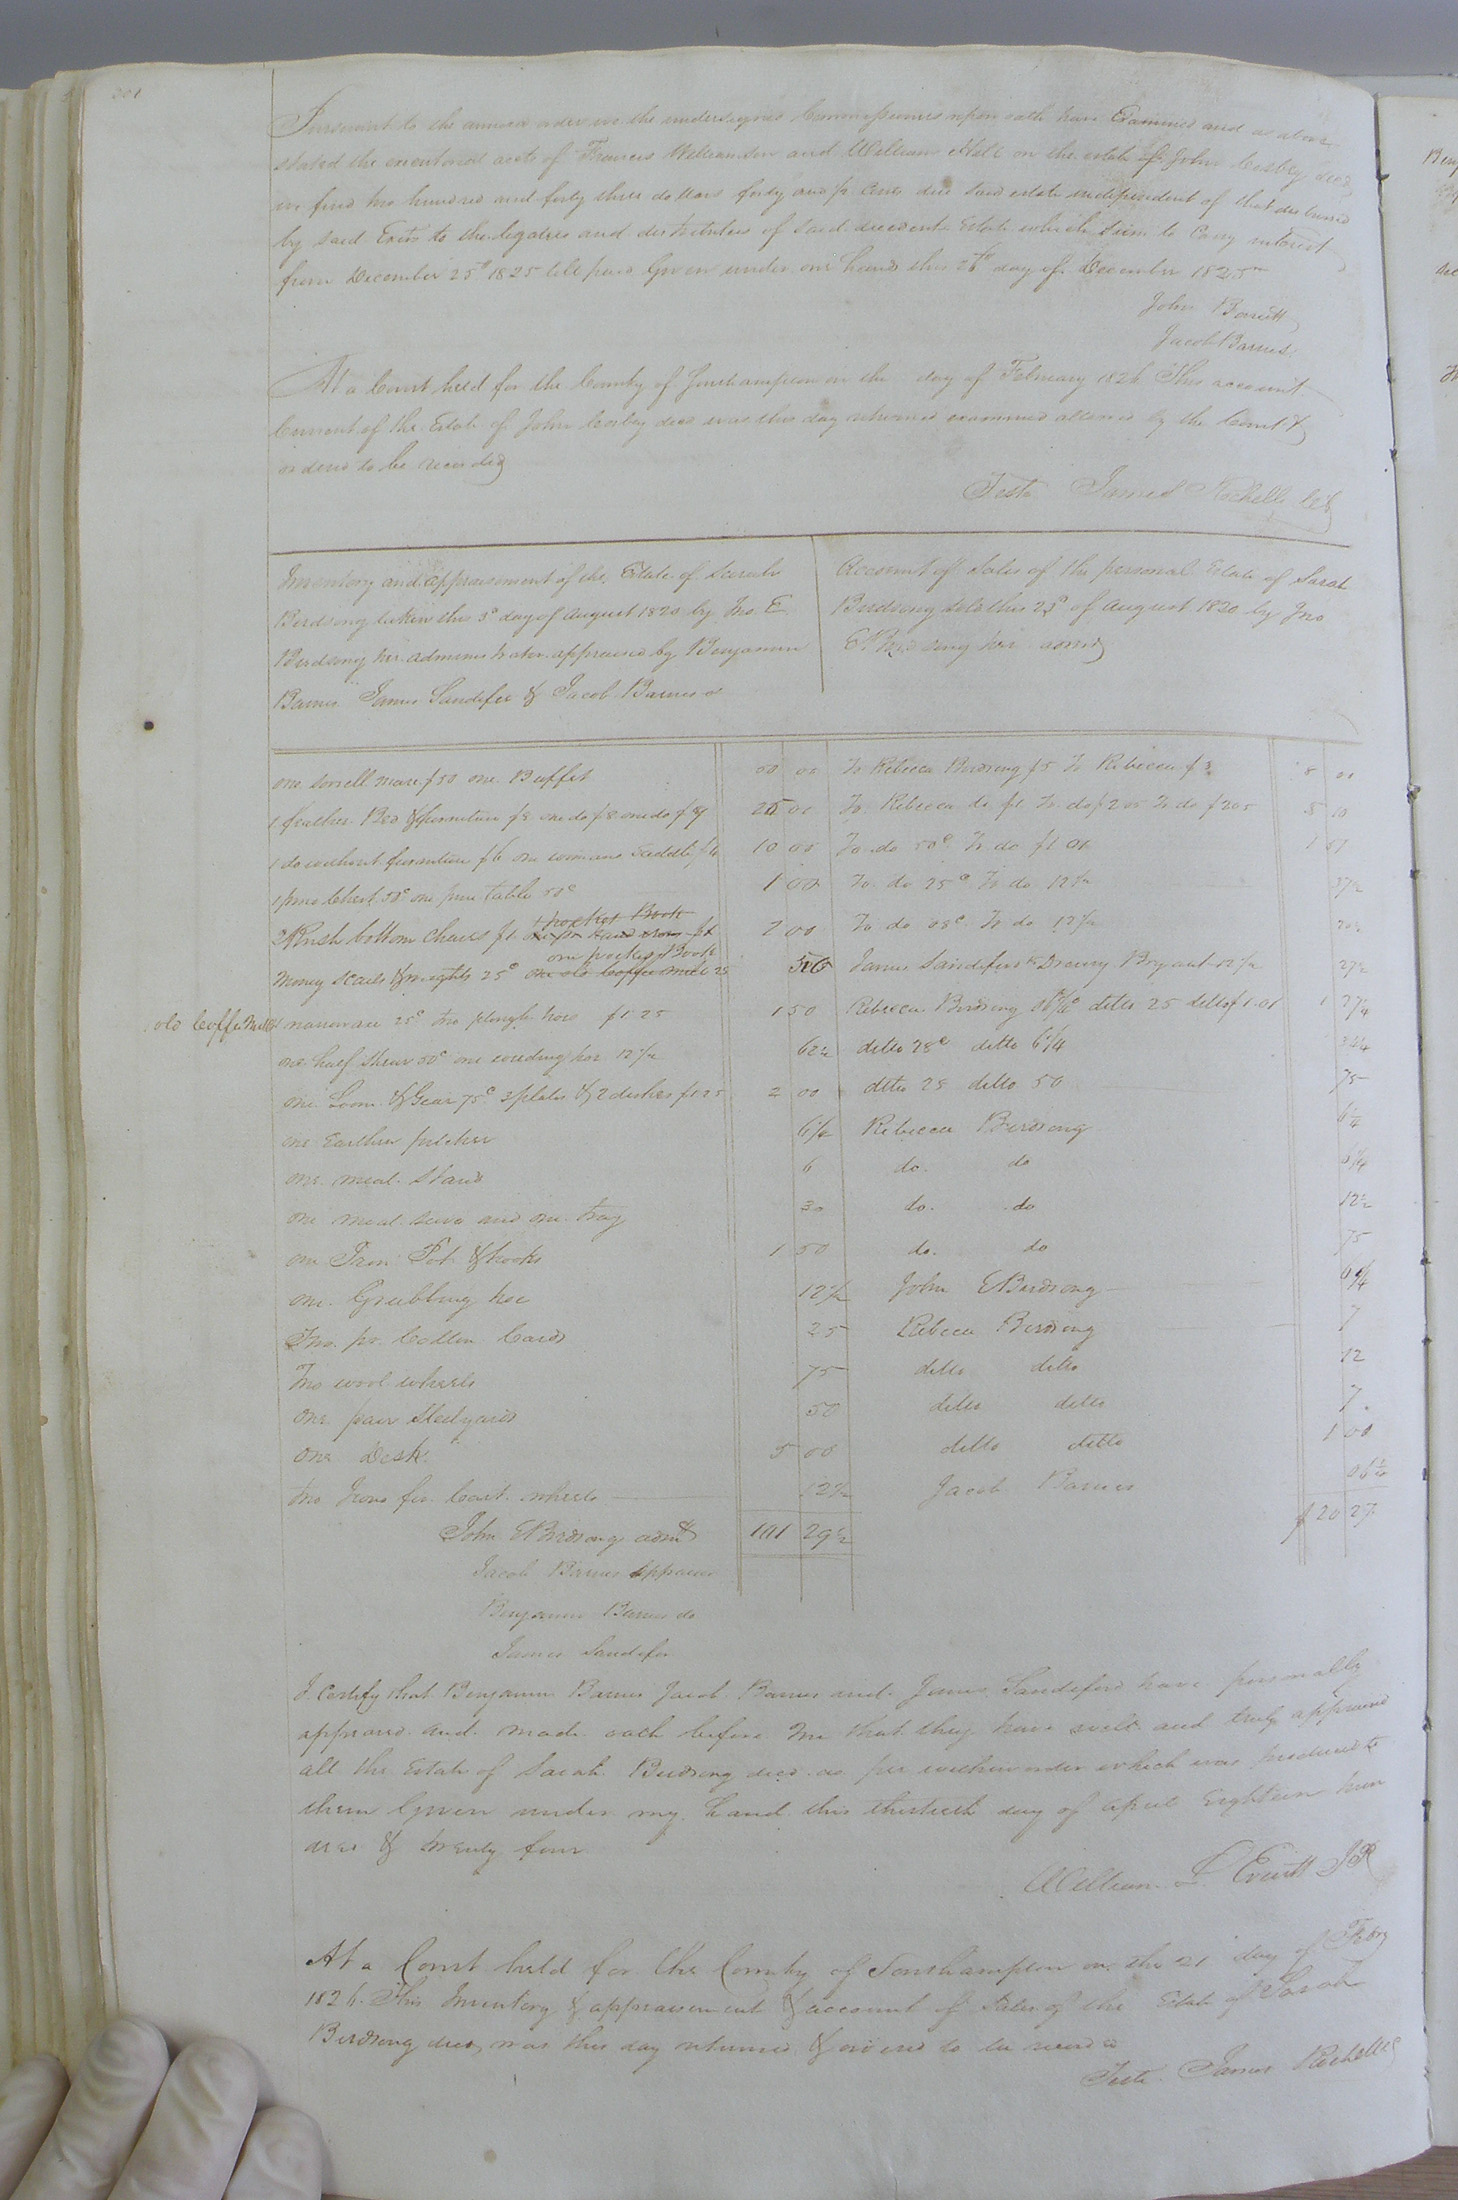 301
Pursuant to the annexd order we the undersigned Commissioners upon oath have Examined and as above
stated the executorial accts of Frances Williamson and William Hill on the estate of John Cosbey decd
we find two hundred and forty three dollars forty and cents due said estate independent of that disbursed
by said Exors to the legatees and distributees of said decedents Estate which sum to Carry interest
from December 25th 1825 till paid Given under our hands this 26th day of December 1825
John Barrett
Jacob Barnes
At a Court held for the County of Southampton on the day of February 1826 This account
Current of the Estate of John Cosbey decd was this day returned examined allowed by the Court &
ordered to be recorded
Teste James Rochelle Clk
Inventory and appraisement of the Estate of Sarah
Birdsong taken this 3d day of August 1820 by Jno. E
Birdsong her administrator appraised by Benjamin
Barnes James Sandifer & Jacob Barnes
Account of Sales of the personal Estate of Sarah
Birdsong sold this 23d of August 1820 by Jno
E Birdsong her admr
one sorrell mare $50 one Buffet 50 00 To Rebecca Birdsong $5 To Rebecca $3 8 00
1 feather Bed & furniture $8 one do $8 one do $9 25 00 To Rebecca do $1 To do $2 05 To do $2 05 5 10
1 do without furniture $6 one womans Saddle $4 10 00 To do 50c To do $1 01 1 51
1 pine Chest 50c one pine table 50c 1 00 To do 25c To do 12½ 37½
2 Rush bottom Chairs $1 1 pocket Book 2 00 To do 08c To do 12½ 20½
one pocket Book
Money scales & weights 25c one old Coffee mill 25 50 James Sandiford Drewry Bryant 12½ 27½
1 old Coffee Mill narrow axe 25c two plough hoes $1 25 1 50 Rebecca Birdsong ditto 25 ditto $1.01 1 37¼
one half shear 50c one weeding hoe 12½ 62½ ditto 28c ditto 6¼ 34¼
one Loom & Gear 75c 3 plates & 2 dishes $1 25 2 00 ditto 25 ditto 50 75
one Earthen pitcher 6¼ Rebecca Birdsong 6¼
one meal Stand 6 do. do 6¼
one meal seive and one tray 30 do. do 12½
one Iron Pot & hooks 1 50 do. do 75
one Grubbing hoe 12½ John E Birdsong 6¼
Two pr. Cotton Cards 25 Rebeca Birdsong 7
Two wool wheels 75 ditto ditto 12
one pair Steelyards 50 ditto ditto 7
one Desk 5 00 ditto ditto 1 00
two Irons for Cart wheels 12½ Jacob Barnes 06¼
John E Birdsong admr 101 29½ $20 27
Jacob Barnes appraiser
Benjamin Barnes do
James Sandifer
I certify that Benjamin Barnes Jacob Barnes and James Sandiford have personally
appeared and made oath before me that they have well and truly appraised
all the Estate of Sarah Birdsong decd as per within order which was produced to
them Given under my hand this thirtieth day of April Eighteen hun
dred & twenty four
William L Everitt JP
At a Court held for the County of Southampton on the 21 day of Feby
1826. This Inventory & appraisement & account of Sales of the Estate of Sarah
Birdsong decd was this day returned & ordered to be recorded
Teste James Rochelle